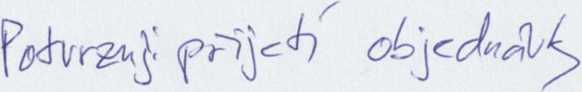 Potvrzuji přijetí objednávky